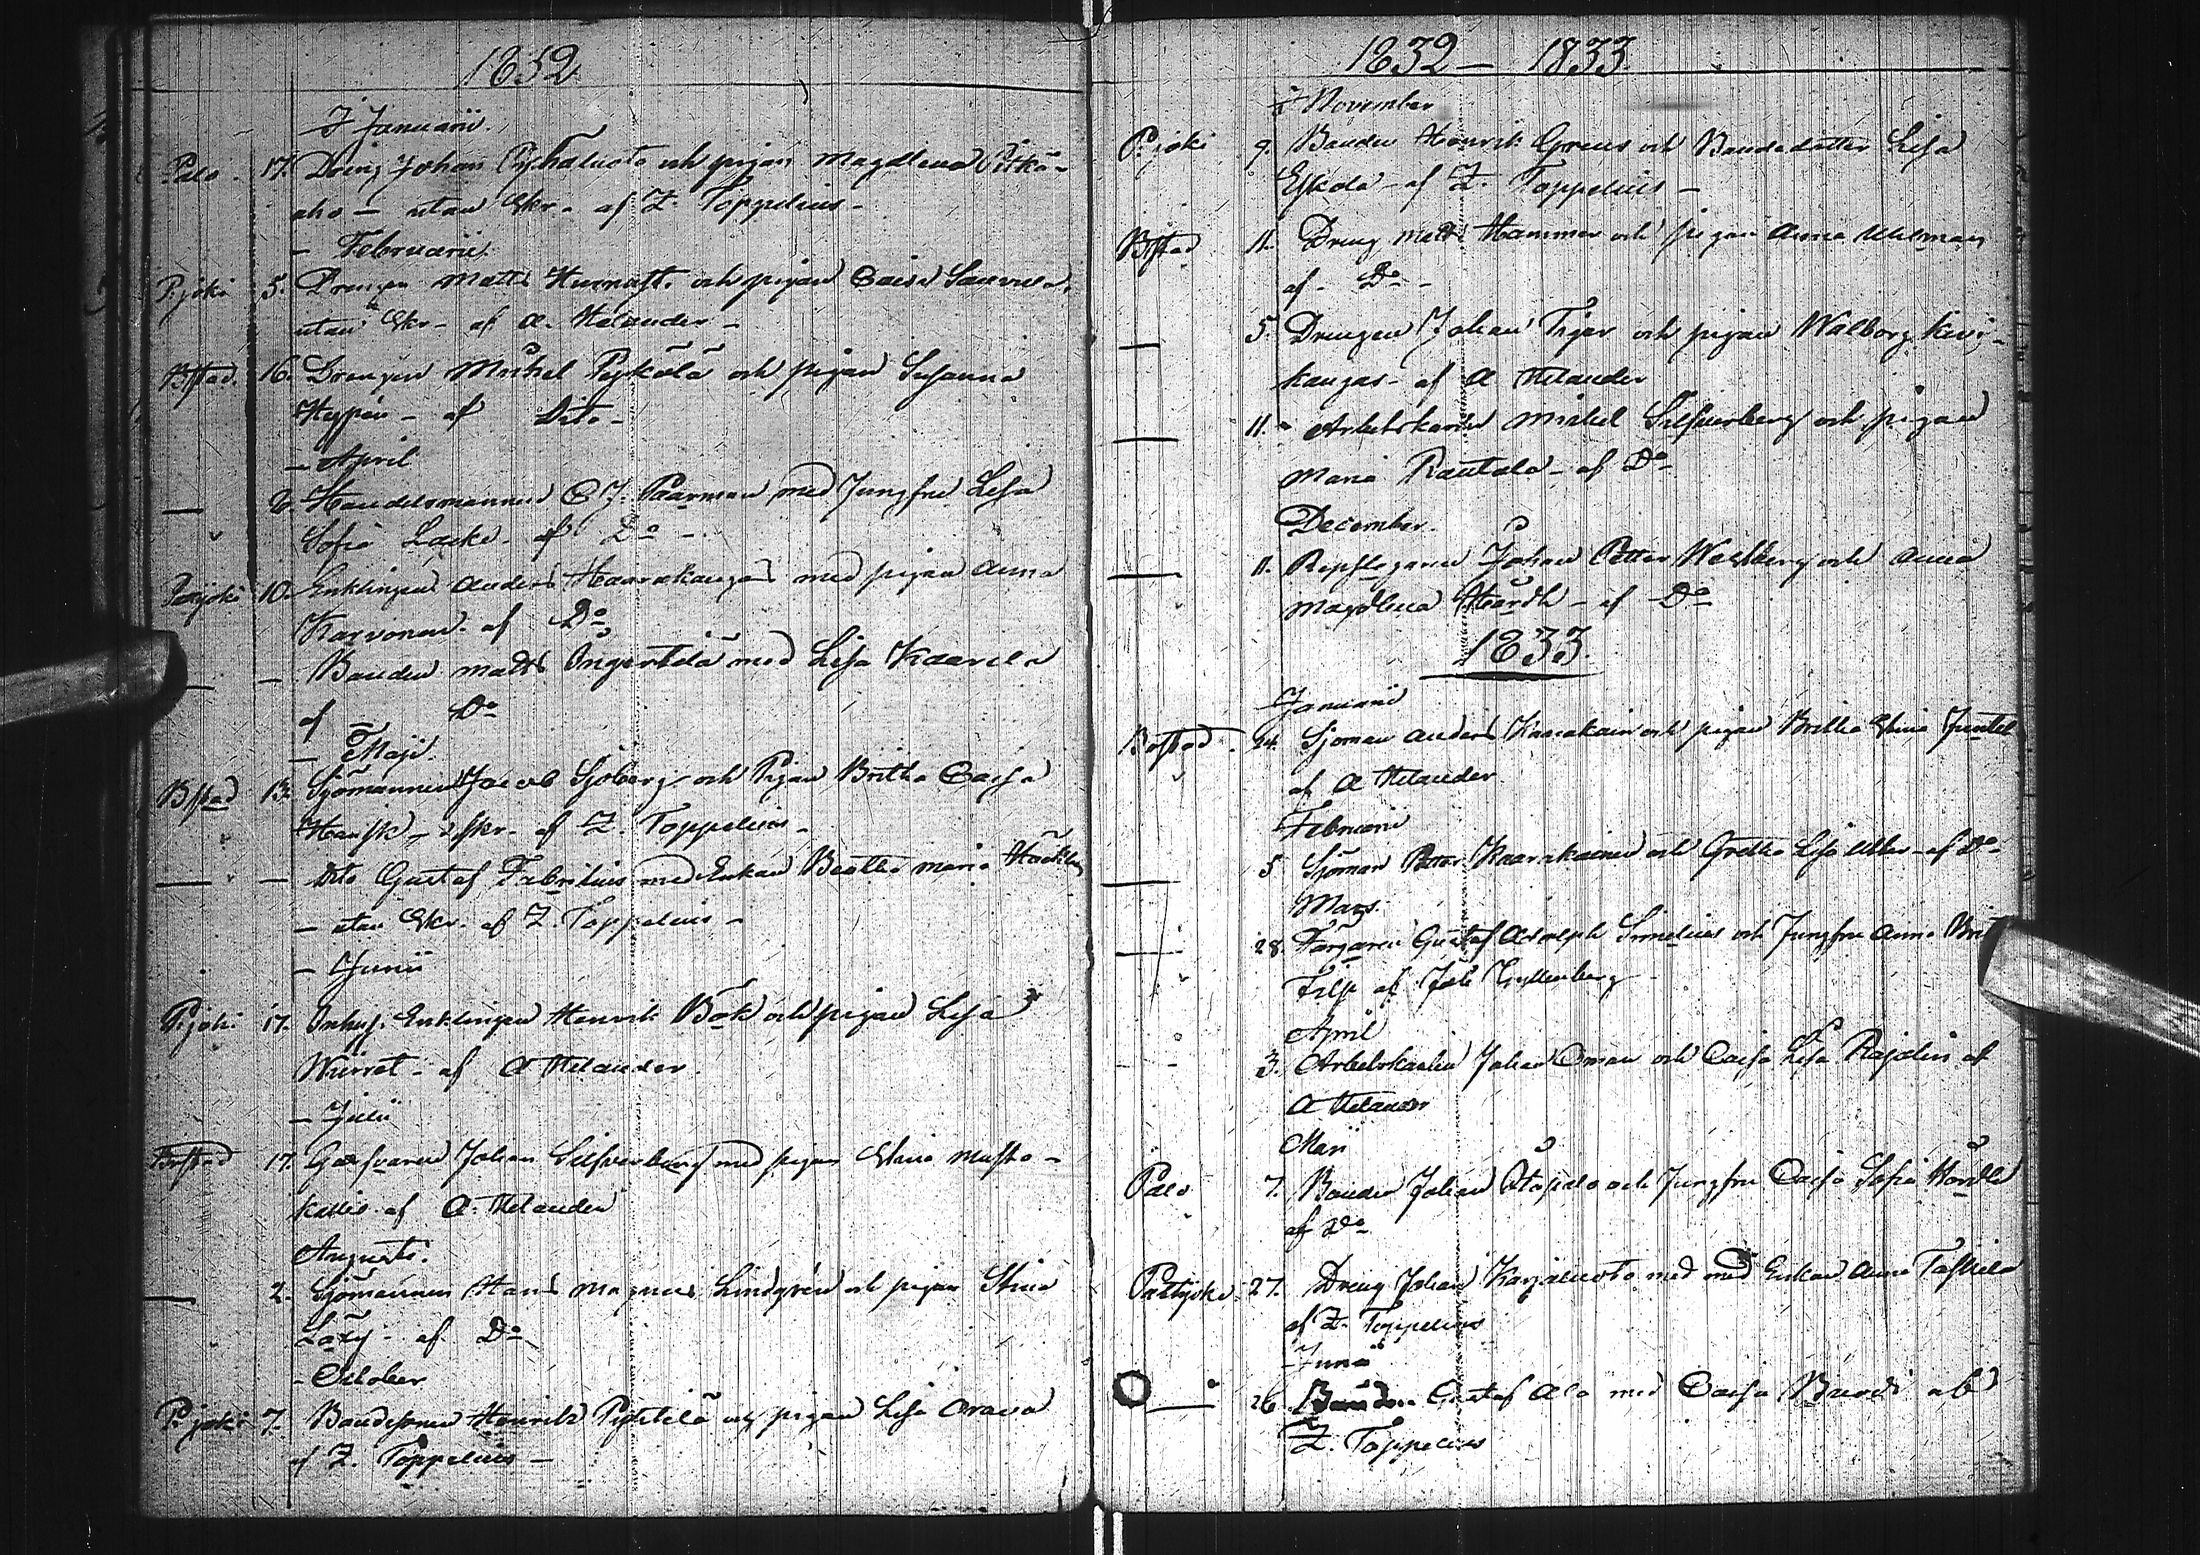 1832
I Januarii.
Palo. 17. Dreng Johan Pyhäluoto och pigan Magdlena Pitkä-
aho - utan Skr. af Z. Toppelius -
- Februarii
P.joki 5. Drengen Matts och pigan Caisa
utan Skr - af A. Helander -
Bstad. 16. Drengen Michel Pyköla och pigan Susanna
Heppén - af Dito -
- April
— 2. Handelsmannen C J. Paarman med Jungfru Lisa
Sofia Lacke - af Do -
Pattjoki 10. Enklingen Anders Haarakangas med pigan Anna
Karvonen - af Do
— — Bonden Matts Ångeslelä med Lisa Kaarela
af Do
— Maji.
Bstad 13. Sjömannen Jacob Sjöberg och Pigan Britha Caisa
Hansk - Skr - af Z. Toppelius -
— — Dito Gustaf Fabritius med Enkan Beatha Maria
- utan Skr. af Z. Toppelius -
- Junii
P.joki 17. Inhys. Enklingen Henrik Bäk och pigan Lisa
Wiirret - af A Helander.
- Julii
Brstad 17. Garfvaren Johan Silfverberg med pigan Stina Musta-
kallio af A. Helander
Augusti.
— 2. Sjömannen Hans Magnus Lindgrén och pigan Stina
Läxy - af Do
- October
P.joki 7. Bondesonen Henrik Pyhtilä och pigan Lisa Orava
af Z. Toppelius -
1832 - 1833
I November
P.joki 9. Bonden Henrik Greus och Bondedotter Lisa
Eskola - af Z. Toppelius -
Bstad 11. Dreng Matts Hammar och pigan Anna Uhlman
af - Do -
— 5. Drengen Johan Tiger och pigan Walborg Kivi-
kangas - af A Helander
— 11. Arbetskarlen Michel Silfverberg och pigan
Maria Rautala - af Do
December.
— 11. Repslagaren Johan Petter Westberg och Anna
Magdlena Hårdh - af Do
1833.
Januarii
Brstad. 24. Sjöman Anders Kaarakain och pigan Britha Stina Juntel
af A Helander
Februarii
— 5 Sjöman Petter Kaarakainen och Gretha Lisa Utter - af Do
Mars.
— 28. Färgaren Gustaf Adolph Simelius och Jungfru Anna Brit
Filip af Joh Gyllenberg -
April
- - 3. Arbetskarlen Johan Öman och Caisa Lisa Rajalin af
A Helander
Maii
Palo 7. Bonden Johan Stapalo och Jungfru Caisa Sofia Hårdh
af Do
Pattjoki. 27. Dreng Johan Karjaluoto med med Enkan Anna Taskila
af Z. Toppelius
Junii
— 26 Bonden Gustaf Ala med Caisa af
Z. Toppelius